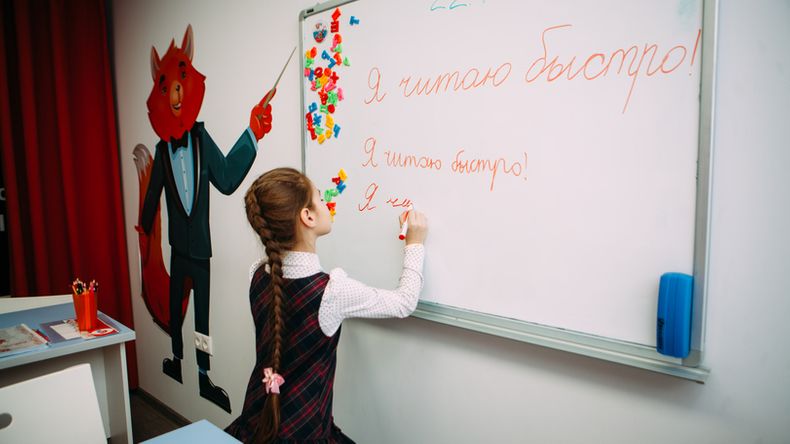 22.
Я читаю быстро!
Я читаю быстро!
Я чи